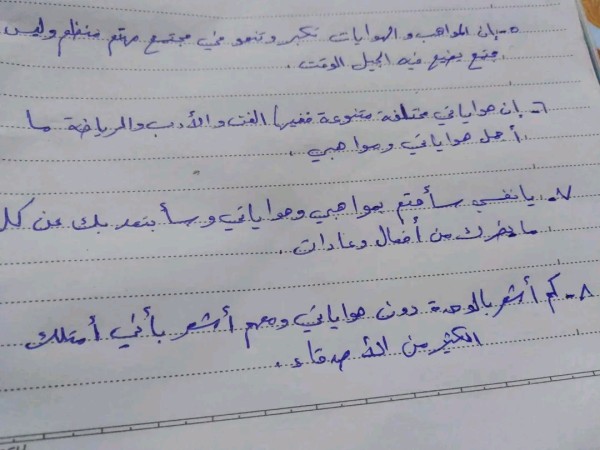 ٥- إن المواهب والهوايات تكبر وتنمو في مجتمع مهتم منظم وليس
مجتمع يضيع فيه الجيل الوقت.
٦- إن هواياتي مختلفة متنوعة ففيها الفن والأدب والرياضة ما
أجمل هواياتي ومواهبي.
٧- يا نفسي سأهتم بمواهبي وهواياتي وسأبتعد بك عن كل
ما يضرك من أفعال وعادات.
٨- كم أشعر بالوحدة دون هواياتي ومعهم أشعر بأني أمتلك
الكثير من الأصدقاء.